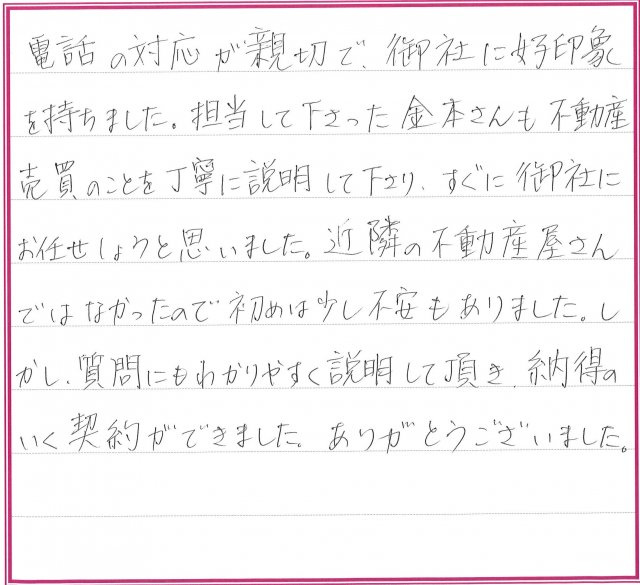 電話の対応が親切で、御社に好印象
を持ちました。担当して下さった金本さんも不動産
売買のことを丁寧に説明して下さり、すぐに御社に
お任せしようと思いました。近隣の不動産屋さん
ではなかったので初めは少し不安もありました。し
かし、質問にもわかりやすく説明して頂き、納得の
いく契約ができました。ありがとうございました。